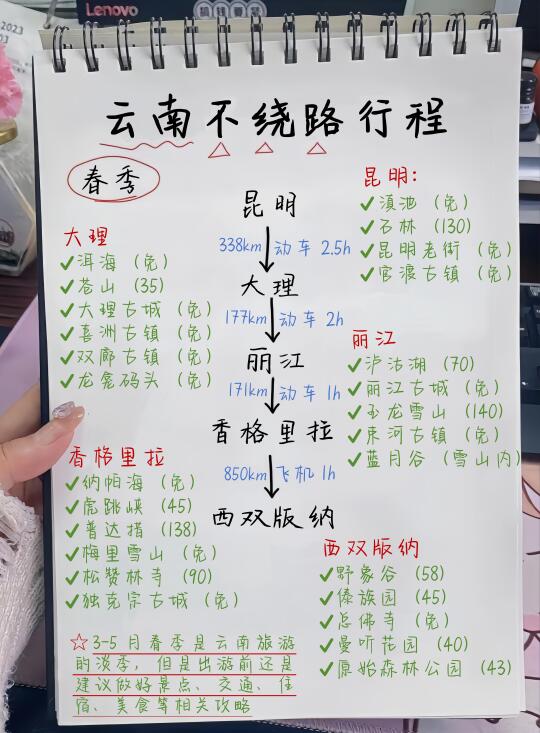 Lenovo
2023
云南不绕路行程
春季
昆明
338km 动车 2.5h
大理
177km 动车 2h
丽江
171km 动车 1h
香格里拉
850km 飞机 1h
西双版纳
昆明:
✓滇池 (免)
✓石林 (130)
✓昆明老街 (免)
✓官渡古镇 (免)
大理
✓洱海 (免)
✓苍山 (35)
✓大理古城 (免)
✓喜洲古镇 (免)
✓双廊古镇 (免)
✓龙龛码头 (免)
丽江
✓泸沽湖 (70)
✓丽江古城 (免)
✓玉龙雪山 (140)
✓束河古镇 (免)
✓蓝月谷 (雪山内)
香格里拉
✓纳帕海 (免)
✓虎跳峡 (45)
✓普达措 (138)
✓梅里雪山 (免)
✓松赞林寺 (90)
✓独克宗古城 (免)
西双版纳
✓野象谷 (58)
✓傣族园 (45)
✓总佛寺 (免)
✓曼听花园 (40)
✓原始森林公园 (43)
☆3-5月春季是云南旅游
的淡季，但是出游前还是
建议做好景点、交通、住
宿、美食等相关攻略